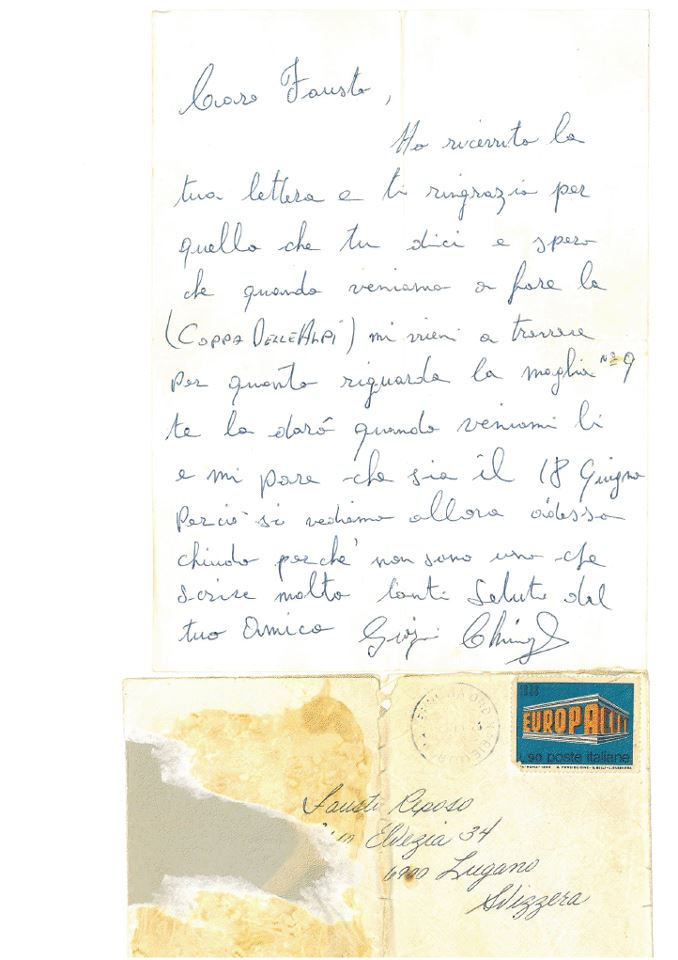 Caro Fausto,
Ho ricevuto la
tua lettera e ti ringrazio per
quello che tu dici e spero
che quando veniamo a fare la
(COPPA DELLE ALPI) mi vieni a trovare
Per quanto riguarda la maglia nº 9
te la darò quando veniami li
e mi pare che sia il 18 Giugno
Perciò si vediamo allora adesso
chiudo perchè non sono uno che
scrive molto tanti Saluti dal
tuo Amico
EUROPA
L. 90 poste italiane
Fausto Riposo
Elvezia 34
6900 Lugano
Svizzera